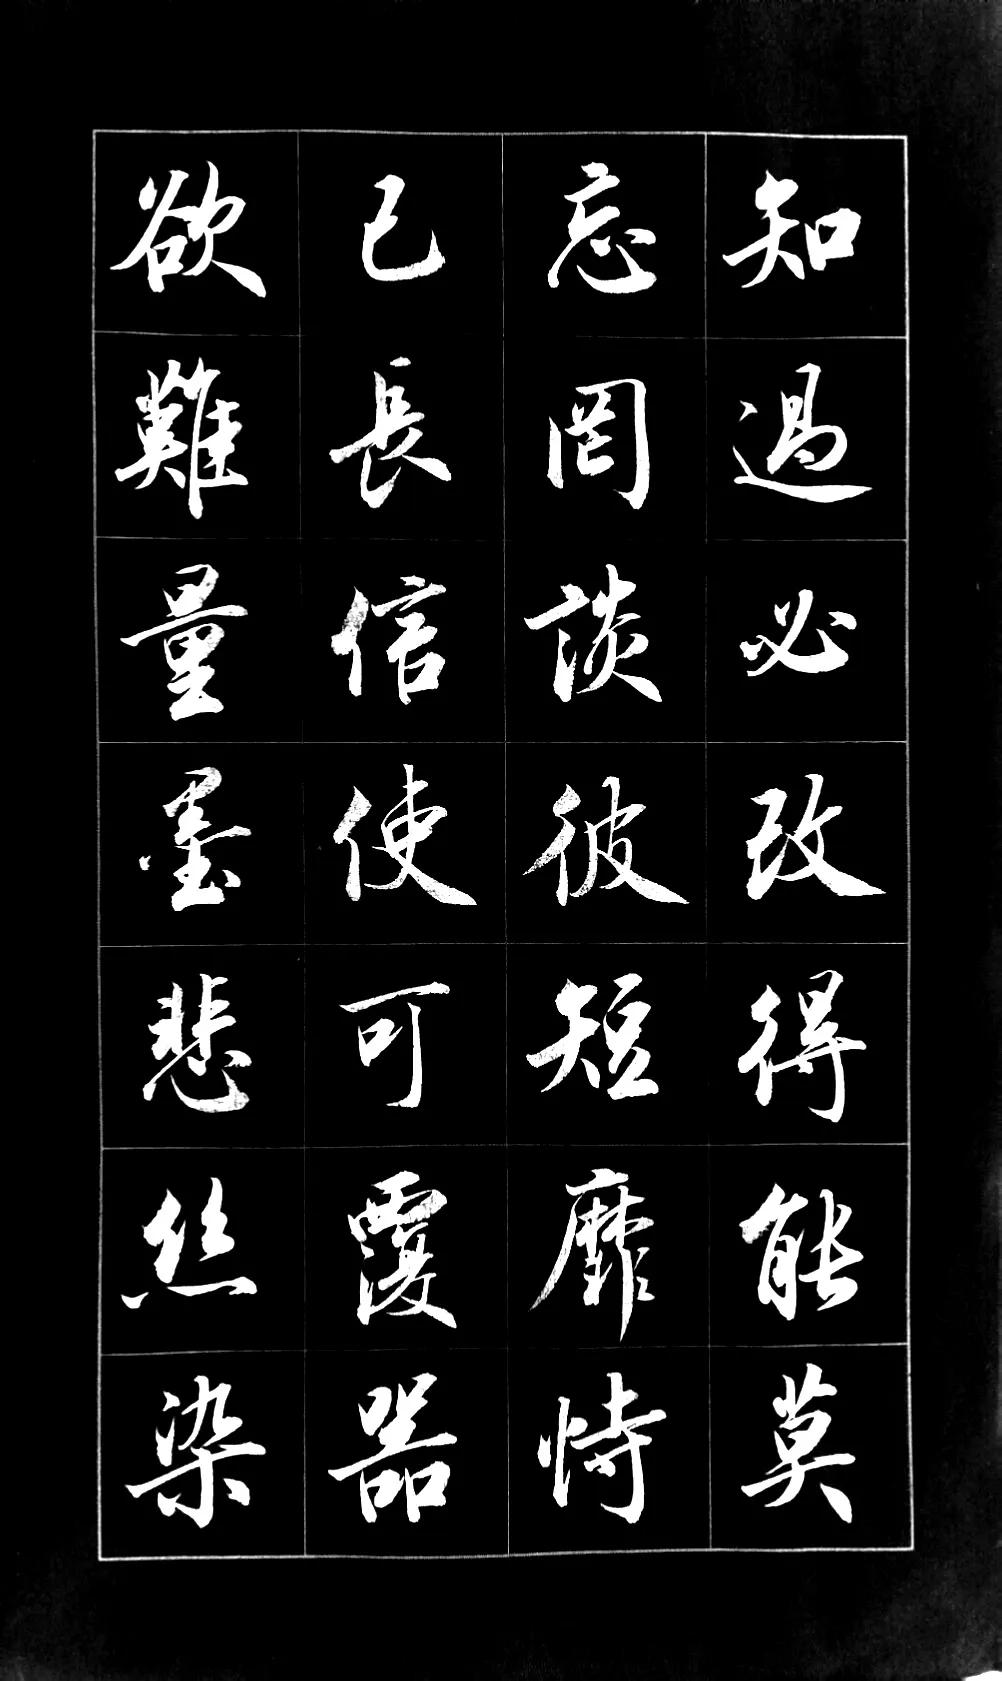 知過必改得能莫
忘罔談彼短靡恃
已長信使可覆器
欲難量墨悲丝染